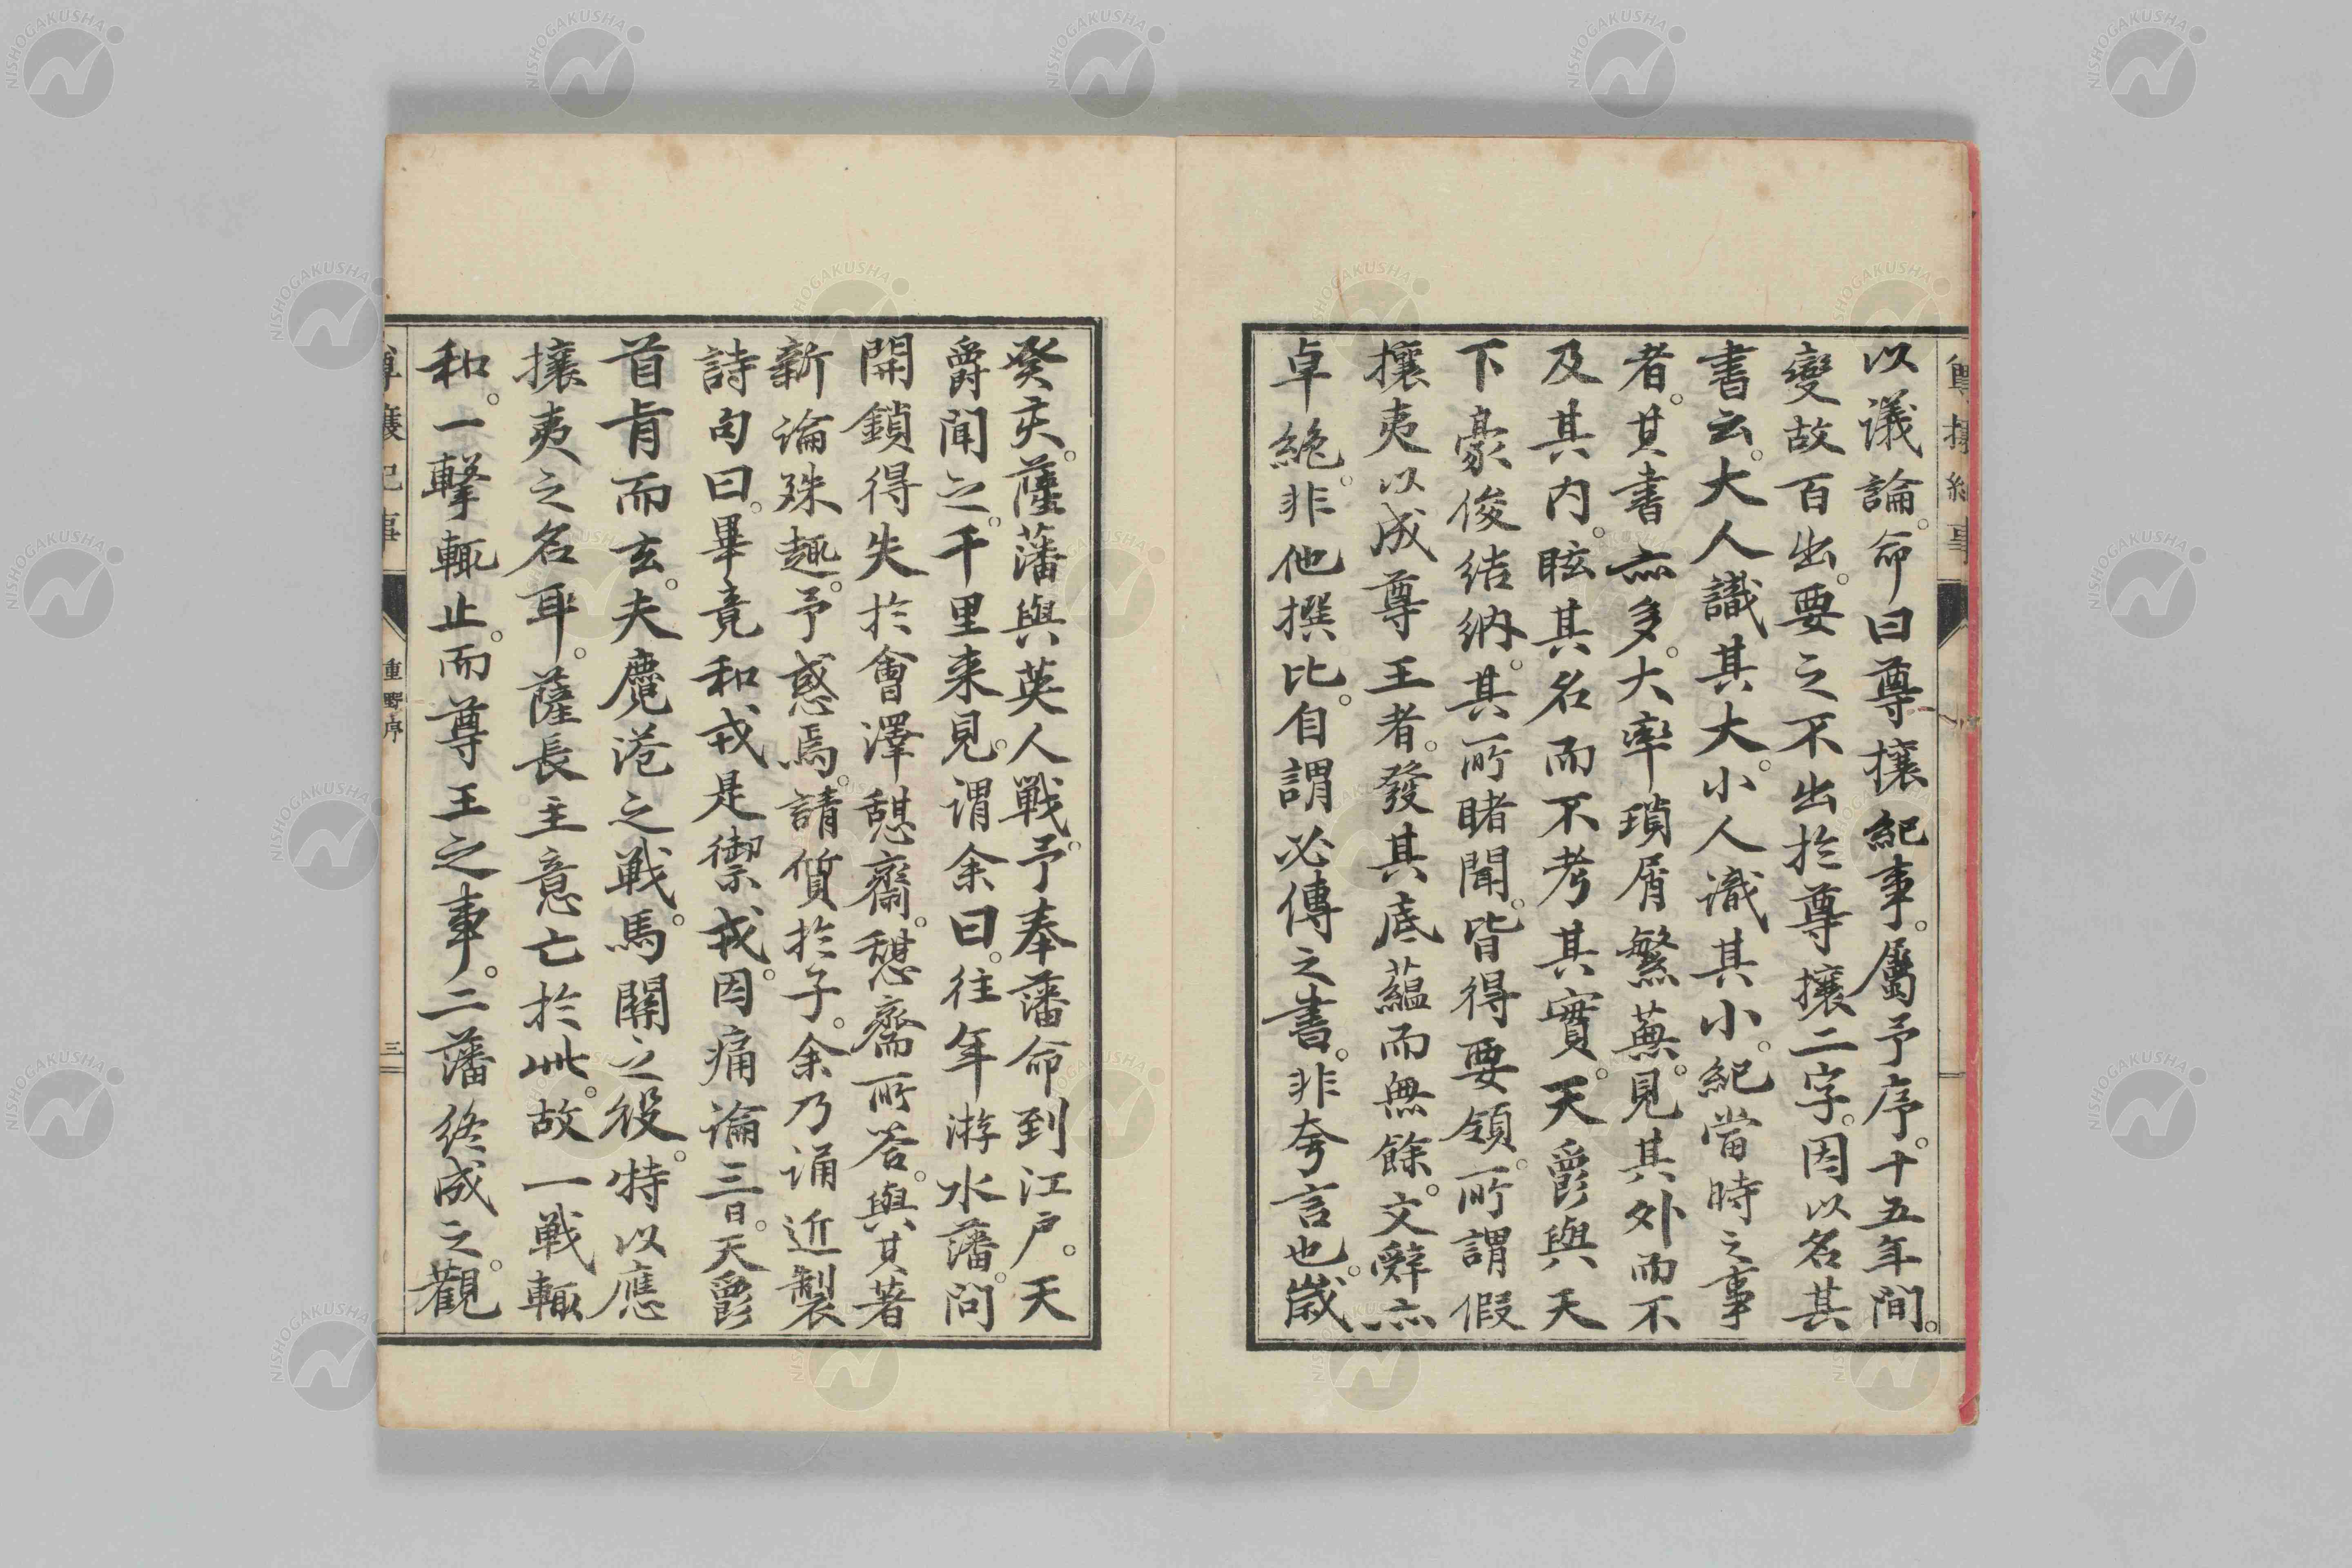 以議論。命曰尊攘紀事。屬予序。十五年間。
變故百出。要之不出於尊攘二字。因以名其
書云。大人識其大。小人識其小。紀當時之事
者。其書亦多。大率瑣屑繁蕪。見其外而不
及其内。眩其名而不考其實。天爵與天
下豪俊結納。其所睹聞。皆得要領。所謂假
攘夷以成尊王者。發其底蘊而無餘。文辭亦
卓絶。非他撰比。自謂必傳之書。非夸言也。歲
癸亥。薩藩與英人戰。予奉藩命到江户。天
爵聞之。千里来見。谓余曰。往年游水藩。問
開鎖得失於會澤憩齋。憩齋所答。與其著
新論殊趣。予惑焉。請質於子。余乃诵近製
詩句曰。畢竟和戎是禦戎。因痛論三日。天爵
首肯而玄。夫麑港之戰。馬關之役。特以應
攘夷之名耳。薩長主意亡於此。故一戰輙
和。一擊輙止。而尊王之事。二藩終成之。觀
尊攘紀事
重野序
三